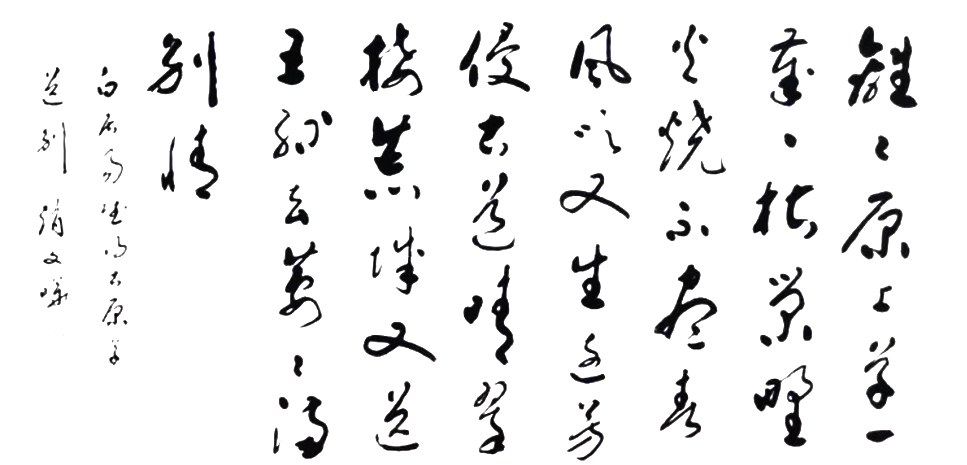 離々原上草一
歲一枯榮野
火燒不盡春
風吹又生遠芳
侵古道晴翠
接荒城又送
王孫去萋々滿
別情
白居易賦得古原草
送別